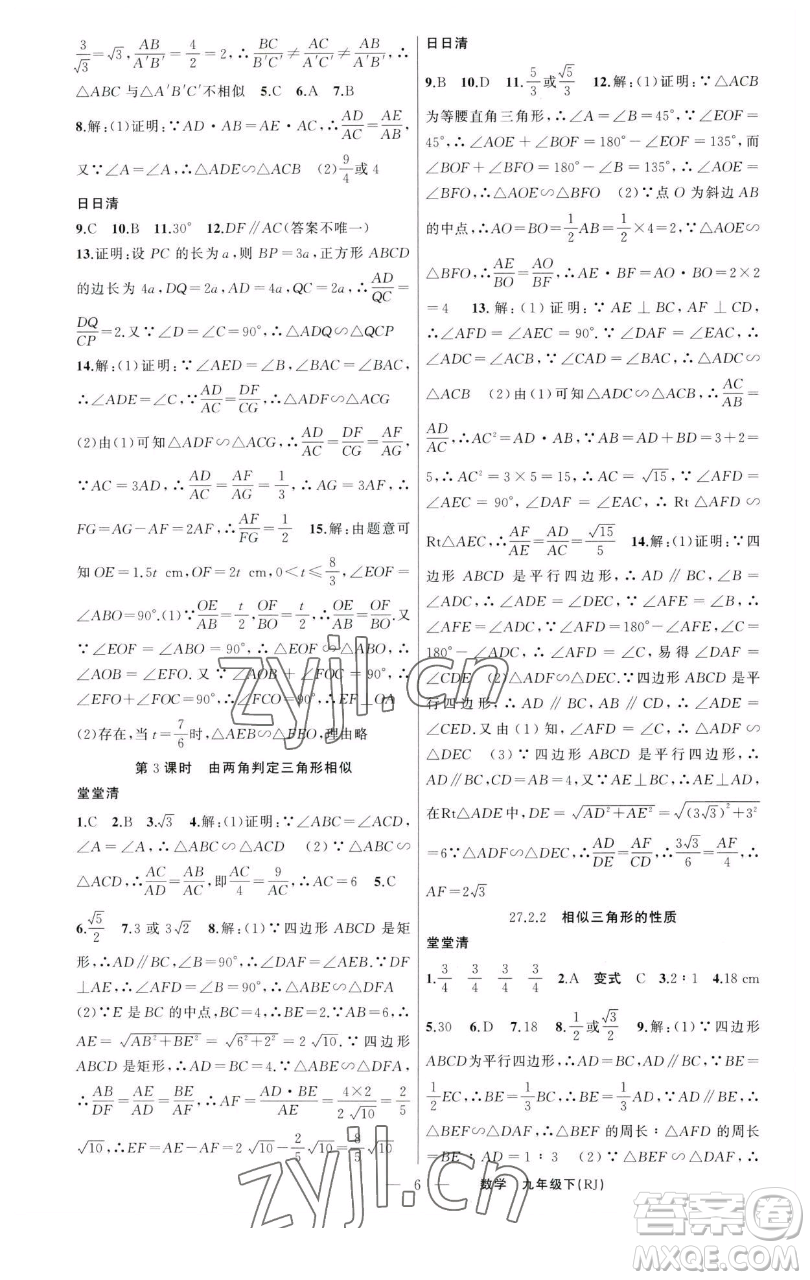 3/√3=√3,AB/A′B′=4/2=2,∴BC/B′C′≠AC/A′C′≠AB/A′B′,∴
△ABC与△A′B′C′不相似 5.C 6.A 7.B
8.解:(1)证明:∵AD·AB=AE·AC,∴AD/AC=AE/AB,
又∵∠A=∠A,∴△ADE∽△ACB (2)9/4或4
日日清
9.C 10.B 11.30° 12.DF∥AC(答案不唯一)
13.证明:设PC的长为a,则BP=3a,正方形ABCD
的边长为4a,DQ=2a,AD=4a,QC=2a,∴AD/QC=
DQ/CP=2.又∵∠D=∠C=90°,∴△ADQ∽△QCP
14.解:(1)证明:∵∠AED=∠B,∠BAC=∠BAC,
∴∠ADE=∠C,∵AD/AC=DF/CG,∴△ADF∽△ACG
(2)由(1)可知△ADF∽△ACG,∴AD/AC=DF/CG=AF/AG,
∵AC=3AD,∴AD/AC=AF/AG=1/3,∴AG=3AF,
FG=AG-AF=2AF,∴AF/FG=1/2 15.解:由题意可
知OE=1.5t cm,OF=2t cm,0<t≤8/3,
∠ABO=90°.(1)∵OE/AB=t/2,OF/BO=t/2,∴OE/AB=OF/BO.又
∵∠EOF=∠ABO=90°,∴△EOF∽△ABO,∴
∠AOB=∠EFO.又∵∠AOB+∠FOC=90°,∴
∠EFO+∠FOC=90°,∠FCO=90°,∴EF⊥OA
(2)存在,当t=7/6时,△AOB∽△FEO,理由略
第3课时 由两角判定三角形相似
堂堂清
1.C 2.B 3.√3 4.解:(1)证明:∵∠ABC=∠ACD,
∠A=∠A,∴△ABC∽△ACD (2)∵△ABC∽
△ACD,∴AC/AD=AB/AC,即AC/4=9/AC,∴AC=6 5.C
6.√5/2 7.3或3√2 8.解:(1)∵四边形ABCD是矩
形,∴AD∥BC,∠B=90°,∴∠DAF=∠AEB.∵DF
⊥AE,∴∠AFD=∠B=90°,∴△ABE∽△DFA
(2)∵E是BC的中点,BC=4,∴BE=2.∵AB=6,∴AE
=√(AB²+BE²)=√(6²+2²)=2√10.∵四边形
ABCD是矩形,∴AD=BC=4.∵△ABE∽△DFA,
∴AB/DF=AD/AE=AF/BE,∴AF=AD·BE/AE=4×2/2√10=2/5
√10,∴EF=AE-AF=2√10-2/5√10=8/5√10
日日清
9.B 10.D 11.5/3或√5/3 12.解:(1)证明:∵△ACB
为等腰直角三角形,∴∠A=∠B=45°,∵∠EOF=
45°,∴∠AOE+∠BOF=180°-∠EOF=135°,而
∠BOF+∠BFO=180°-∠B=135°,∴∠AOE=
∠BFO,∴△AOE∽△BFO (2)∵点O为斜边AB
的中点,∴AO=BO=1/2AB=1/2×4=2,∵△AOE∽
△BFO,∴AE/BO=AO/BF,∴AE·BF=AO·BO=2×2
=4 13.解:(1)证明:∵AE⊥BC,AF⊥CD,
∴∠AFD=∠AEC=90°.∵∠DAF=∠EAC,∴
∠ADC=∠ACB.∵∠CAD=∠BAC,∴△ADC∽
△ACB (2)由(1)可知△ADC∽△ACB,∴AC/AB=
AD/AC,∴AC²=AD·AB.∵AB=AD+BD=3+2=
5,∴AC²=3×5=15,∴AC=√15,∵∠AFD=
∠AEC=90°,∠DAF=∠EAC,∴Rt△AFD∽
Rt△AEC,∴AF/AE=AD/AC=√15/5 14.解:(1)证明:∵四
边形ABCD是平行四边形,∴AD∥BC,∠B=
∠ADC,∴∠ADE=∠DEC,∵∠AFE=∠B,∴
∠AFE=∠ADC,∵∠AFD=180°-∠AFE,∠C=
180°-∠ADC,∴∠AFD=∠C,易得∠ADF=
∠CDE (2)证明:∵四边形ABCD是平
行四边形,∴AD∥BC,AB∥CD,∴∠ADE=
∠CED.又∵∠AFD=∠C,∴△ADF∽
△DEC (3)∵四边形ABCD是平行四边形,
∴AD∥BC,CD=AB=4,又∵AE⊥BC,∴AE⊥AD.
在Rt△ADE中,DE=√(AD²+AE²)=√((3√3)²+3²)
=6∵△ADF∽△DEC,∴AD/DE=AF/CD,∴3√3/6=AF/4,∴
AF=2√3
27.2.2 相似三角形的性质
堂堂清
1.3/4 3/4 3/4 3/4 2.A 变式 C 3.2∶1 4.18 cm
5.30 6.D 7.18 8.1/2或√3/2 9.解:(1)∵四边形
ABCD为平行四边形,∴AD=BC,AD∥BC,∵BE=
1/2EC,∴BE=1/3BC,∴BE=1/3AD,∵AD∥BE,∴
△BEF∽△DAF,∴△BEF的周长∶△DAF的周长
=BE∶AD=1∶3.∵△BEF的周长为4,∴△DAF的
6 数学 九年级下(RJ)
zyjl.cn
zyjl.cn
答案圈
MXQE.COM